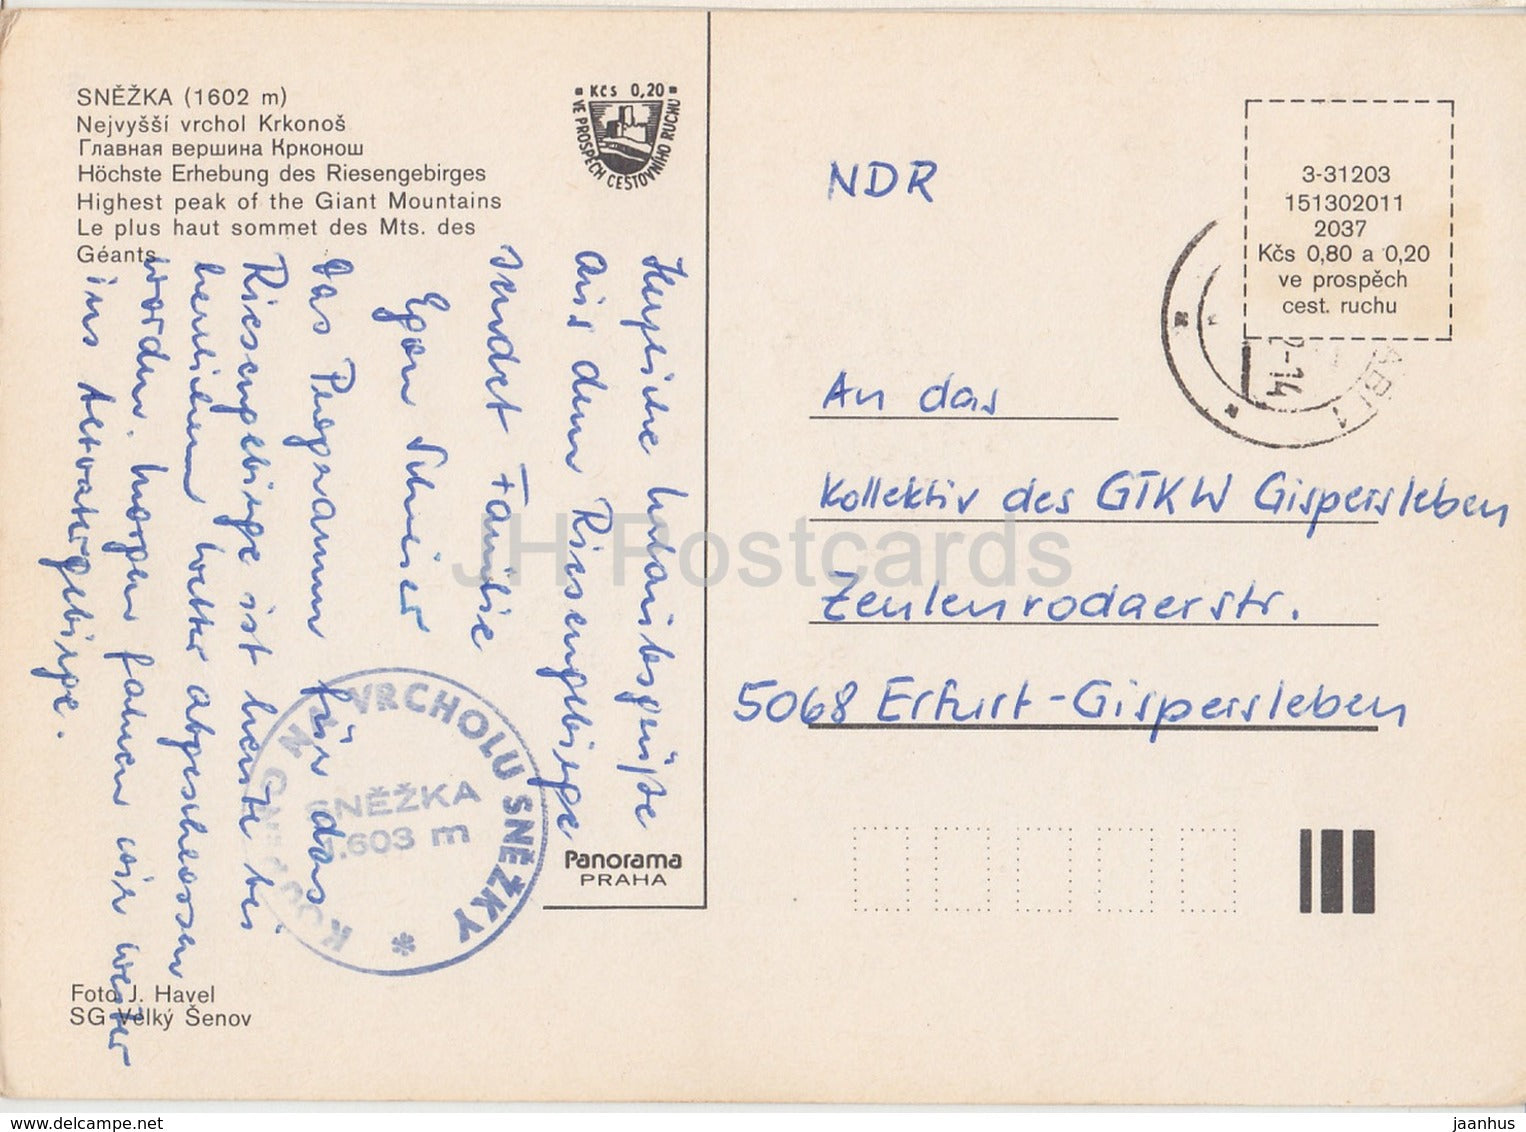 SNĚŽKA (1602 m)
Nejvyšší vrchol Krkonoš
Главная вершина Крконош
Höchste Erhebung des Riesengebirges
Highest peak of the Giant Mountains
Le plus haut sommet des Mts. des
Géants
Kčs 0,20
VE PROSPĚCH CESTOVNÍHO RUCHU
Herzliche Urlaubsgrüße
aus dem Riesengebirge
sendet Familie
Egon Scheiser
Das Programm für das
Riesengebirge ist heute bei
herrlichem Wetter abgeschlossen
worden. Morgen fahren wir weiter
ins Altvatergebirge.
NA VRCHOLU SNĚŽKY *
SNĚŽKA
1.603 m
Panorama
PRAHA
Foto J. Havel
SG Velký Šenov
NDR
3-31203
151302011
2037
Kčs 0,80 a 0,20
ve prospěch
cest. ruchu
2-14
An das
Kollektiv des GTKW Gispersleben
Zeulenrodaerstr.
5068 Erfurt-Gispersleben
JH Postcards
www.delcampe.net
jaanhus